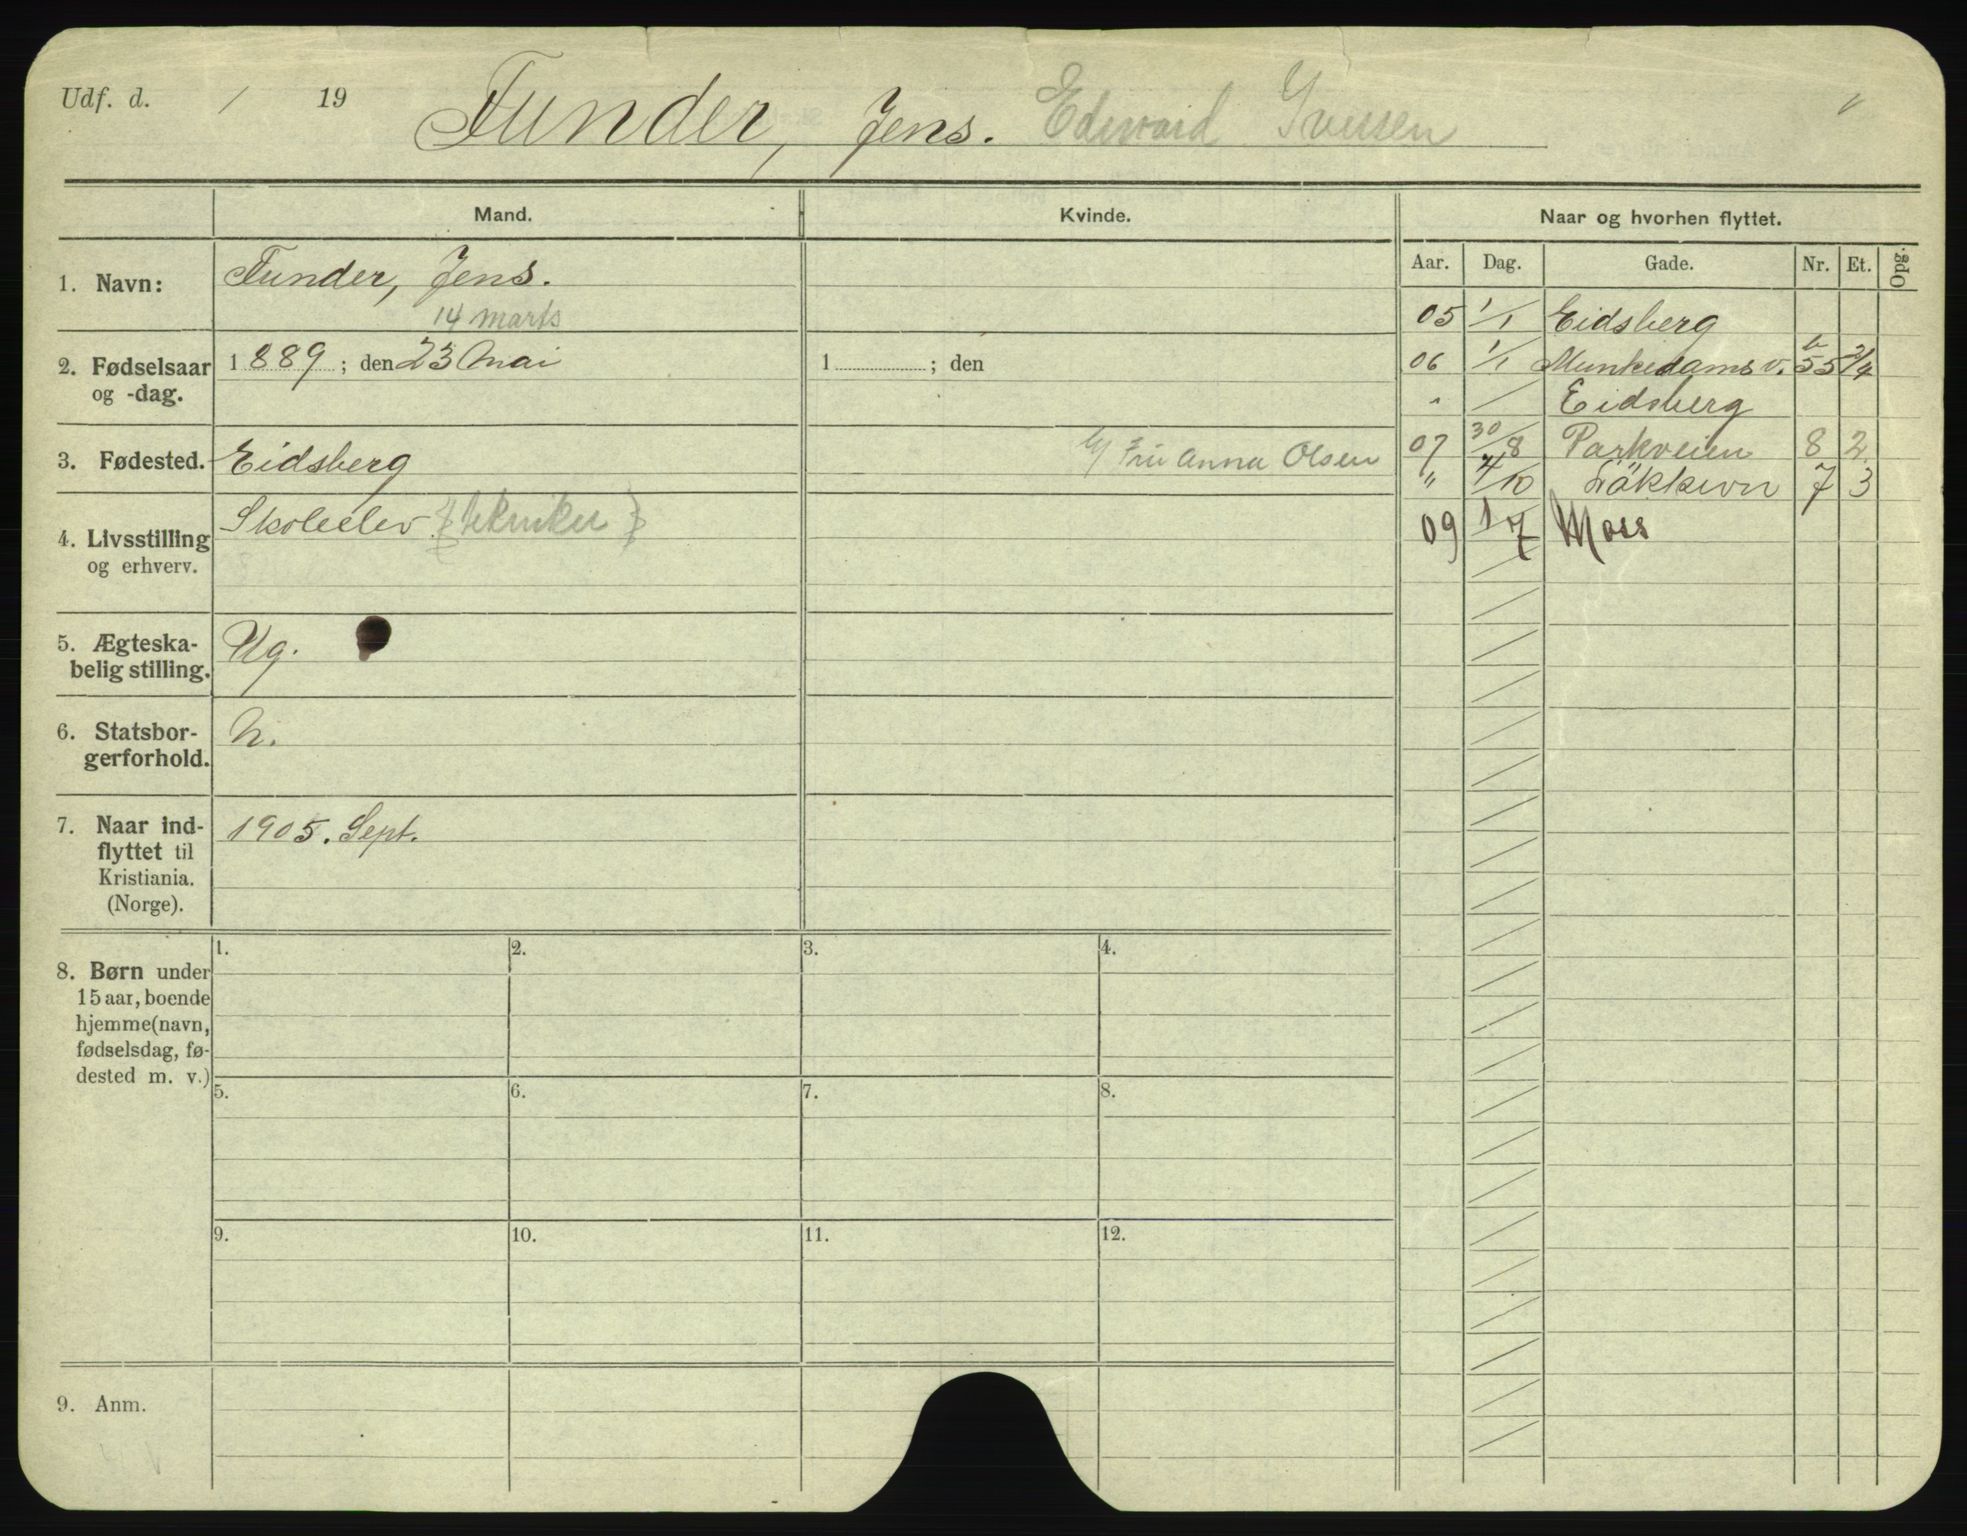 Udf. d. / 19
Funder, Jens. Edward Iversen
Mand.
Kvinde.
Naar og hvorhen flyttet.
Aar. Dag. Gade. Nr. Et. Opg.
1. Navn: Funder, Jens.
14 marts
2. Fødselsaar og -dag. 1889; den 23 Mai
1 ; den
3. Fødested. Eidsberg
c/ Fru Anna Olsen
4. Livsstilling og erhverv. Skoleelev. (tekniker)
5. Ægteska-
belig stilling. Ug.
6. Statsbor-
gerforhold. N.
7. Naar ind-
flyttet til
Kristiania.
(Norge). 1905. Sept.
05 1/1 Eidsberg
06 1/1 Munkedams v. 55 b 2/4
" / Eidsberg
07 30/8 Parkveien 8 2
" 4/10 Løkkevn 7 3
09 1/7 Moss
8. Børn under
15 aar, boende
hjemme (navn,
fødselsdag, fø-
dested m. v.)
1. 2. 3. 4.
5. 6. 7. 8.
9. 10. 11. 12.
9. Anm.